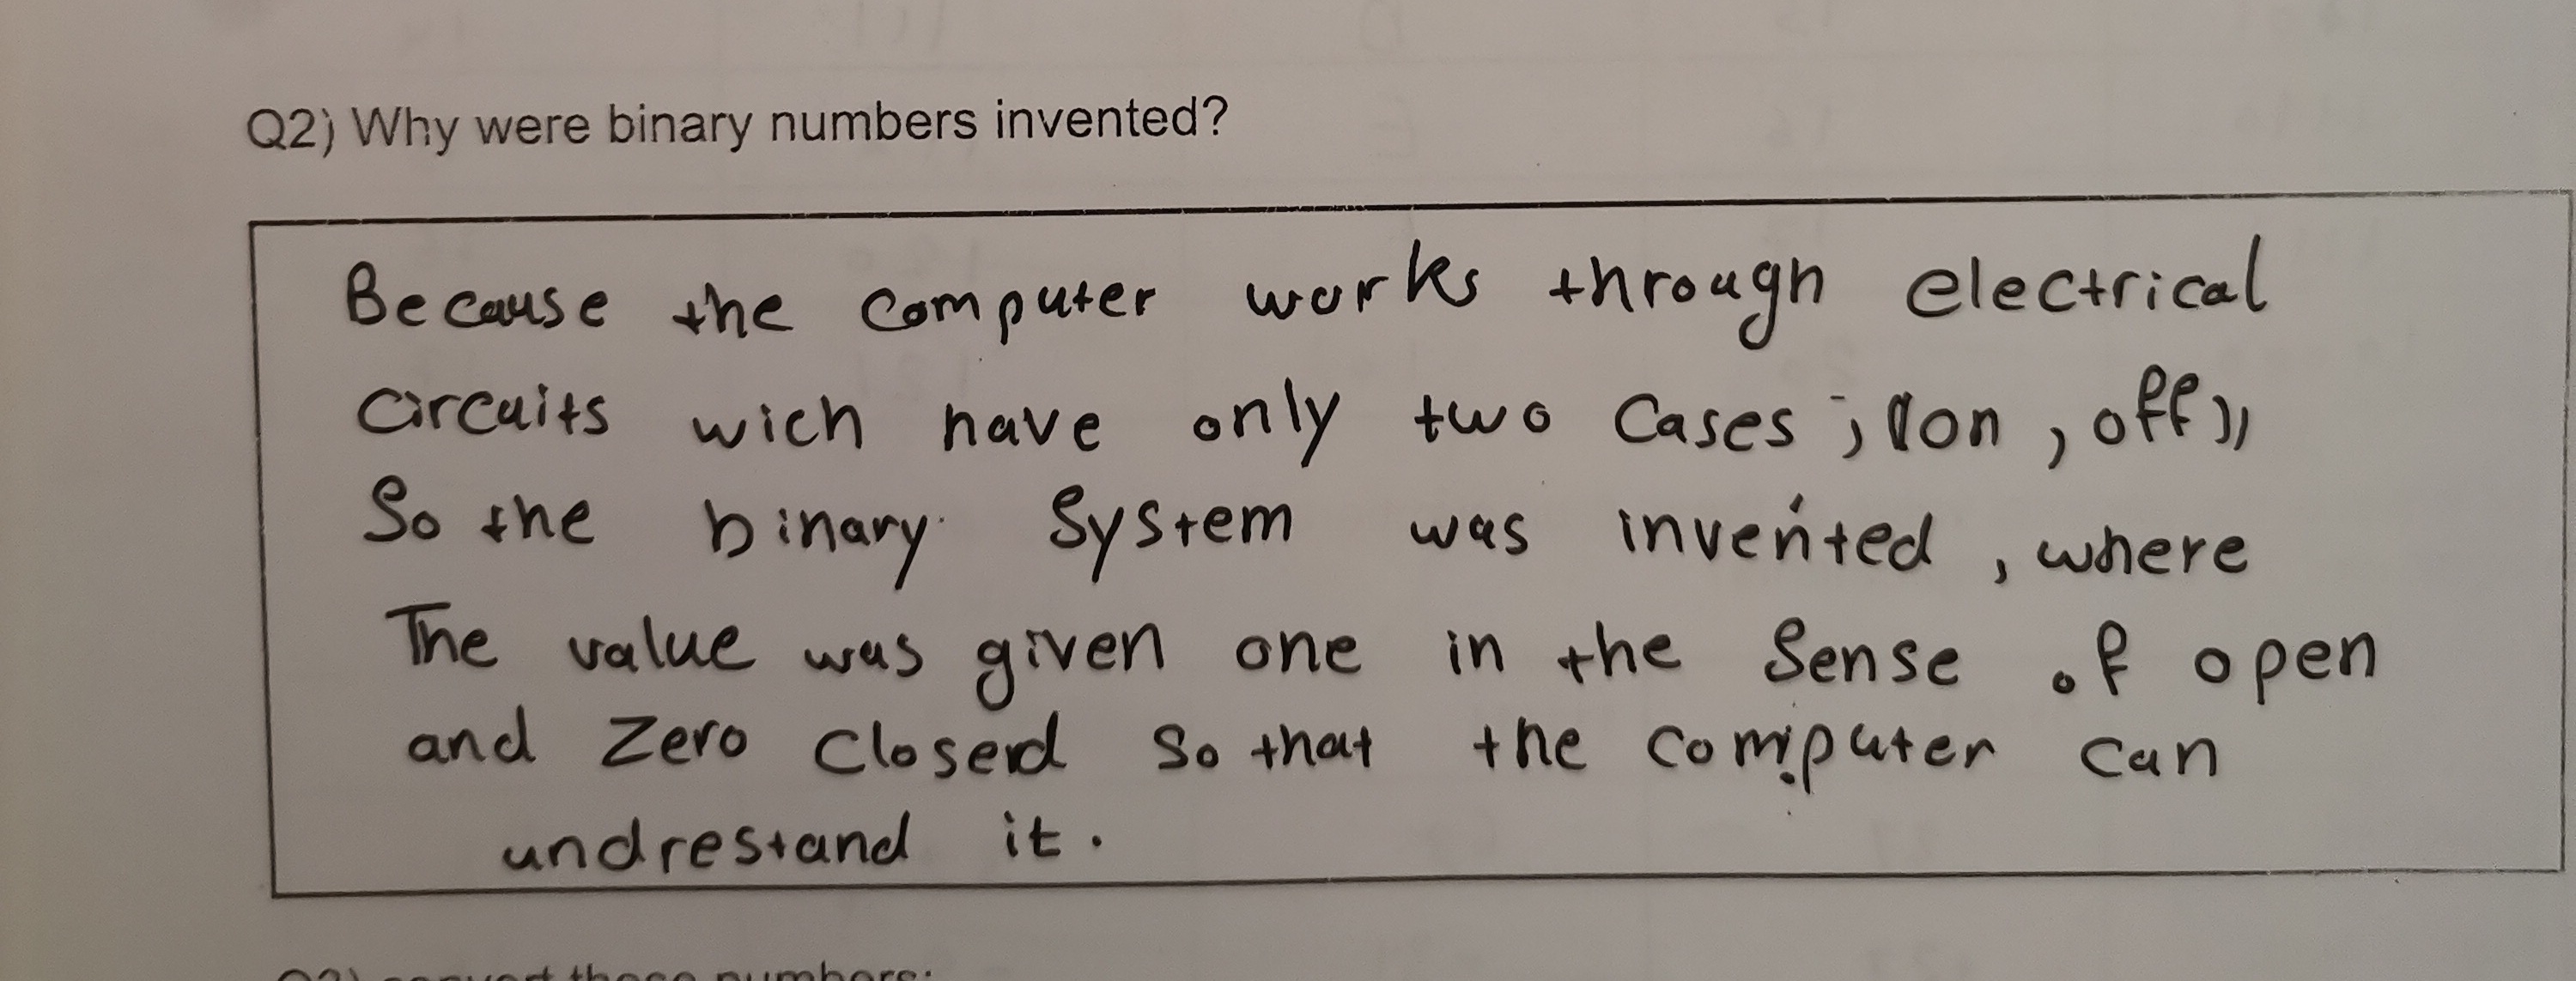 Q2) Why were binary numbers invented?
Because the computer works through electrical
circuits wich have only two cases ; ((on , off))
So the binary system was invented , where
The value was given one in the sense of open
and zero closed so that the computer can
undrestand it .
convert these numbers: